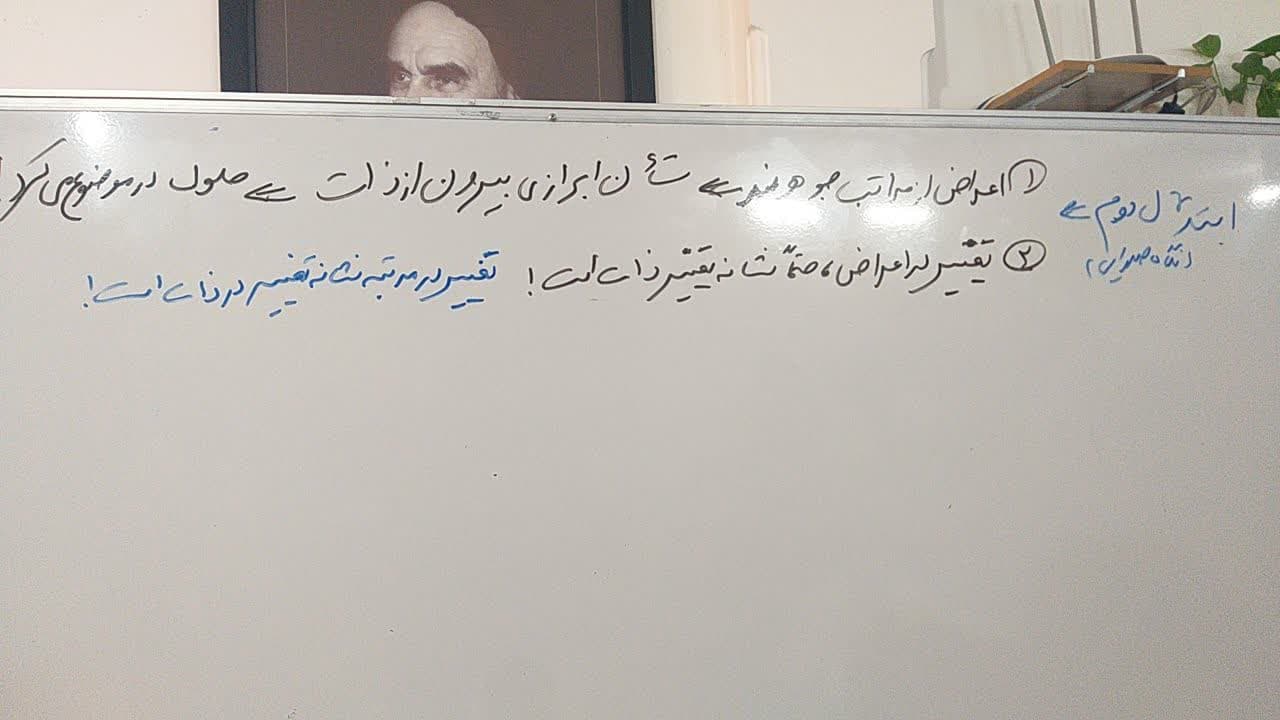 استدلال دوم ←
(نگاه صدرایی)
① اعراض از مراتب جوهرند ← شأن ابرازی بیرون از ذات ← حلول در موضوع می‌کند
② تغییر در اعراض، حتماً نشانه تغییر ذات است! تغییر در مرتبه نشانه تغییر در ذات است!